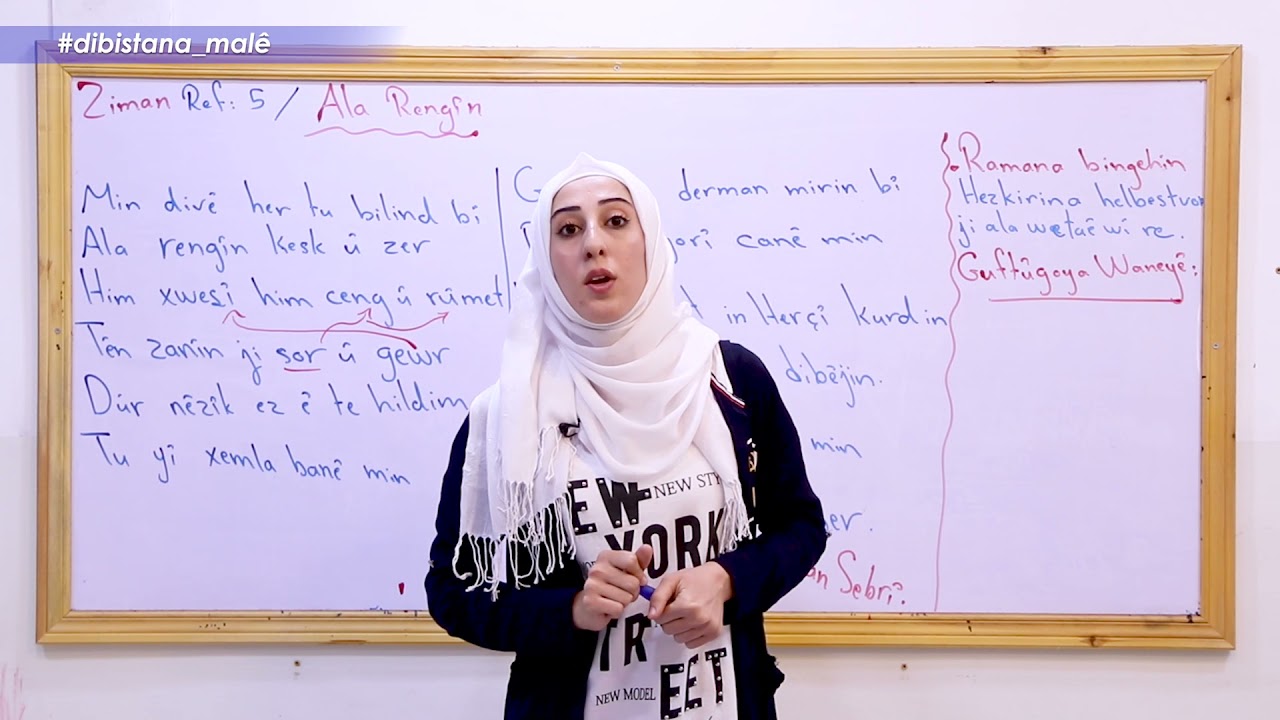 #dibistana_malê
Ziman Ref: 5 / Ala Rengîn
Min divê her tu bilind bî
Ala rengîn kesk û zer
Him xweşî him ceng û rûmet
Tên zanîn ji sor û gewr
Dûr nêzîk ez ê te hildim
Tu yî xemla banê min
derman mirin bî
canê min
in Herçî kurdin
dibêjin.
min
Sebrî?
Ramana bingehîn
Hezkirina helbestvan
ji ala wetaê wî re.
Guftûgoya Waneyê:
NEW STY
YORK
NEW MODEL